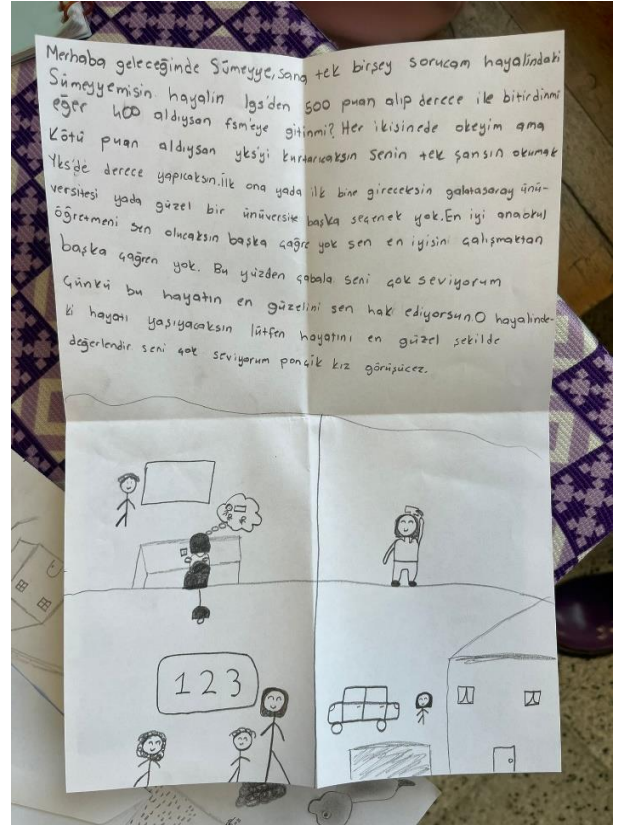 Merhaba geleceğimde Sümeyye, sana tek birşey sorucam hayalindaki
Sümeyyemisin hayalin lgs'den 500 puan alıp derece ile bitirdinmi
eğer 400 aldıysan fsm'eye gitinmi? Her ikisinede okeyim ama
Kötü puan aldıysan yks'yi kurtarıcaksın senin tek şansın okumak
Yks'de derece yapıcaksın. İlk ona yada ilk bine gireceksin galatasaray ünü-
versitesi yada güzel bir ünüversite başka seçenek yok. En iyi anaokul
öğretmeni sen olucaksın başka çağre yok sen en iyisini çalışmaktan
başka çağren yok. Bu yüzden çabala seni çok seviyorum
Çünkü bu hayatın en güzelini sen hak ediyorsun. O hayalinde-
ki hayatı yaşıyacaksın lütfen hayatını en güzel şekilde
değerlendir seni çok seviyorum ponçik kız görüşücez.
1 2 3